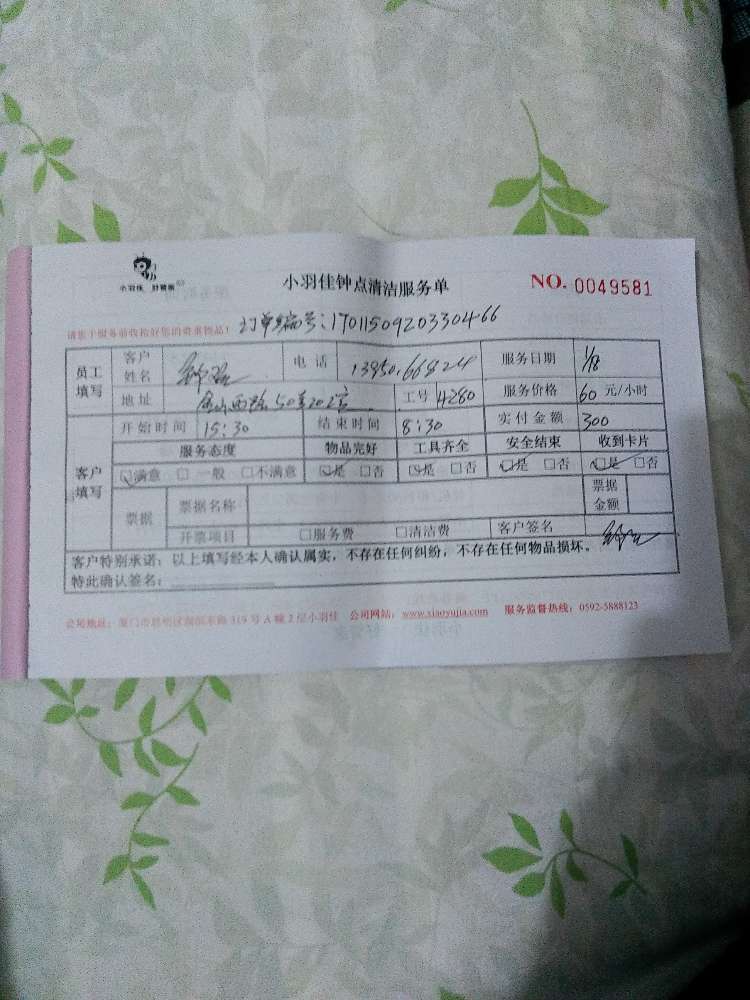 小羽佳 好管家
小羽佳钟点清洁服务单
NO. 0049581
请您于服务前收检好您的贵重物品!
订单编号:17011509203304​66
员工填写 客户姓名 电话 服务日期 1/18
地址 工号 4280 服务价格 60 元/小时
客户填写 开始时间 15:30 结束时间 8:30 实付金额 300
服务态度 物品完好 工具齐全 安全结束 收到卡片
☑满意 □一般 □不满意 ☑是 □否 ☑是 □否 ☑是 □否 ☑是 □否
票据 票据名称 票据金额
开票项目 □服务费 □清洁费 客户签名
客户特别承诺:以上填写经本人确认属实,不存在任何纠纷,不存在任何物品损坏。
特此确认签名:
公司地址:厦门市思明区湖滨东路319号A幢2层小羽佳 公司网站:www.xiaoyujia.com 服务监督热线:0592-5888123